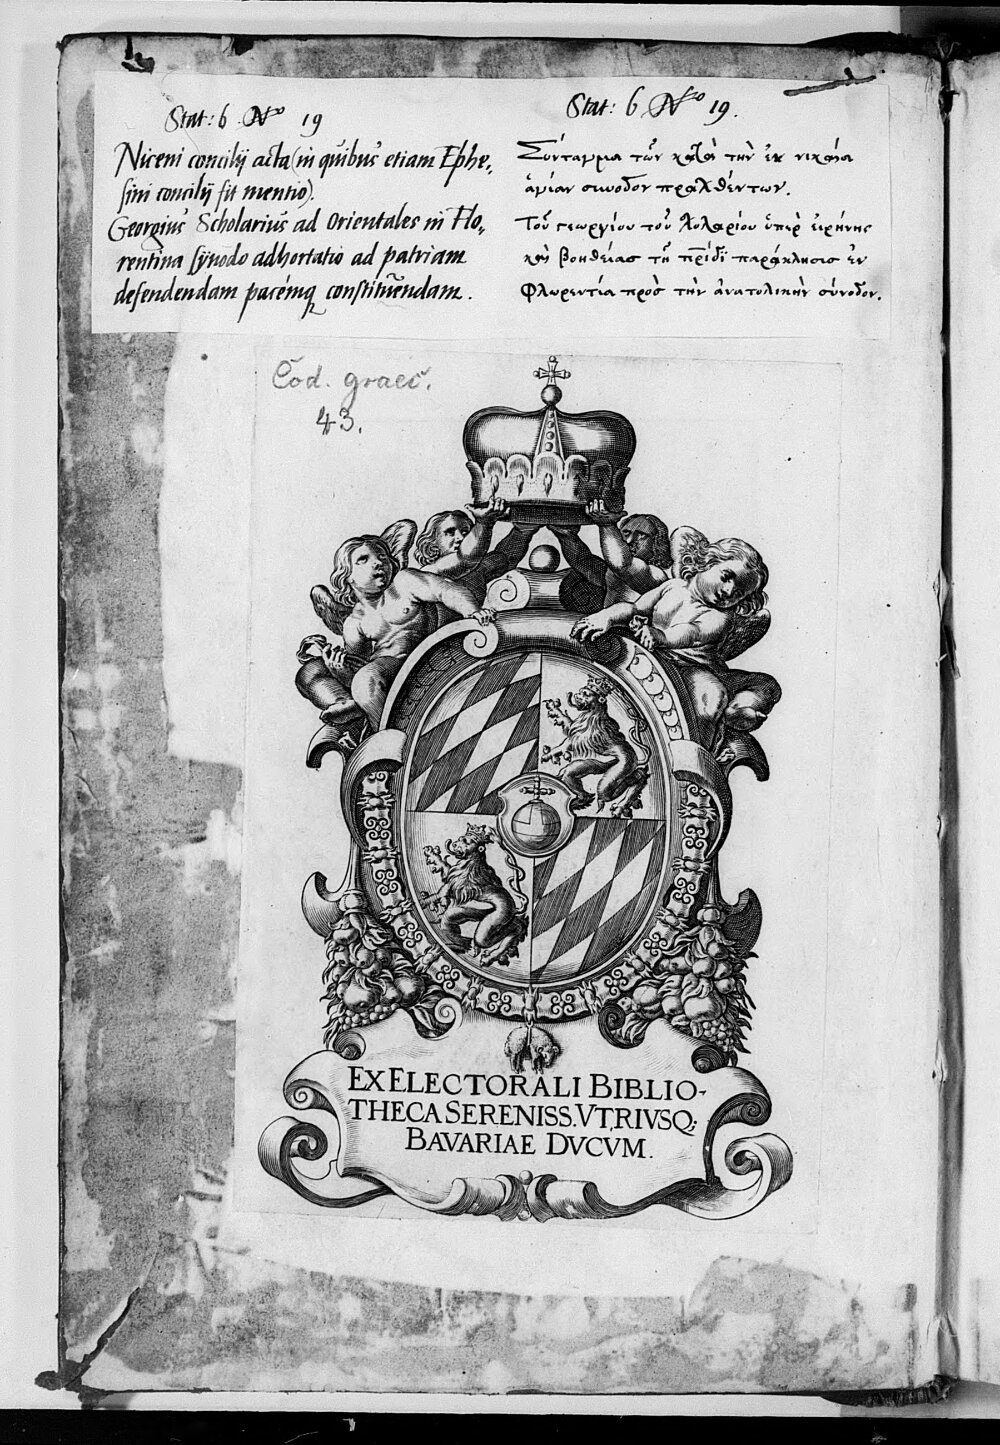 Stat: 6. No 19
Niceni concilij acta (in quibus etiam Ephe,
sini concilij fit mentio).
Georgius Scholarius ad Orientales in Flo,
rentina synodo adhortatio ad patriam
defendendam pacemq constituendam.
Stat: 6 No 19.
Σύνταγμα τῶν κατὰ τὴν ἐκ νικαία
ἁγίαν σύνοδον πραχθέντων.
Τοῦ γεωργίου τοῦ Σχολαρίου ὑπὲρ εἰρήνης
καὶ βοηθείασ τῆ πρίδϊ παράκλησισ ἐν
Φλωρεντία πρὸσ τὴν ἀνατολικὴν σύνοδον.
Cod. graec.
43.
EX ELECTORALI BIBLIO-
THECA SERENISS. VTRIVSQ;
BAVARIAE DVCVM.